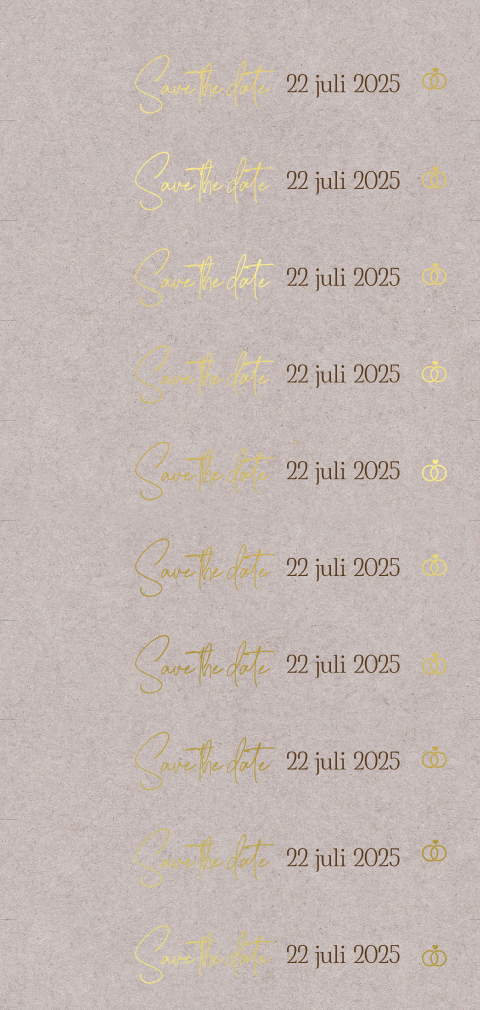 Save the date 22 juli 2025
Save the date 22 juli 2025
Save the date 22 juli 2025
Save the date 22 juli 2025
Save the date 22 juli 2025
Save the date 22 juli 2025
Save the date 22 juli 2025
Save the date 22 juli 2025
Save the date 22 juli 2025
Save the date 22 juli 2025